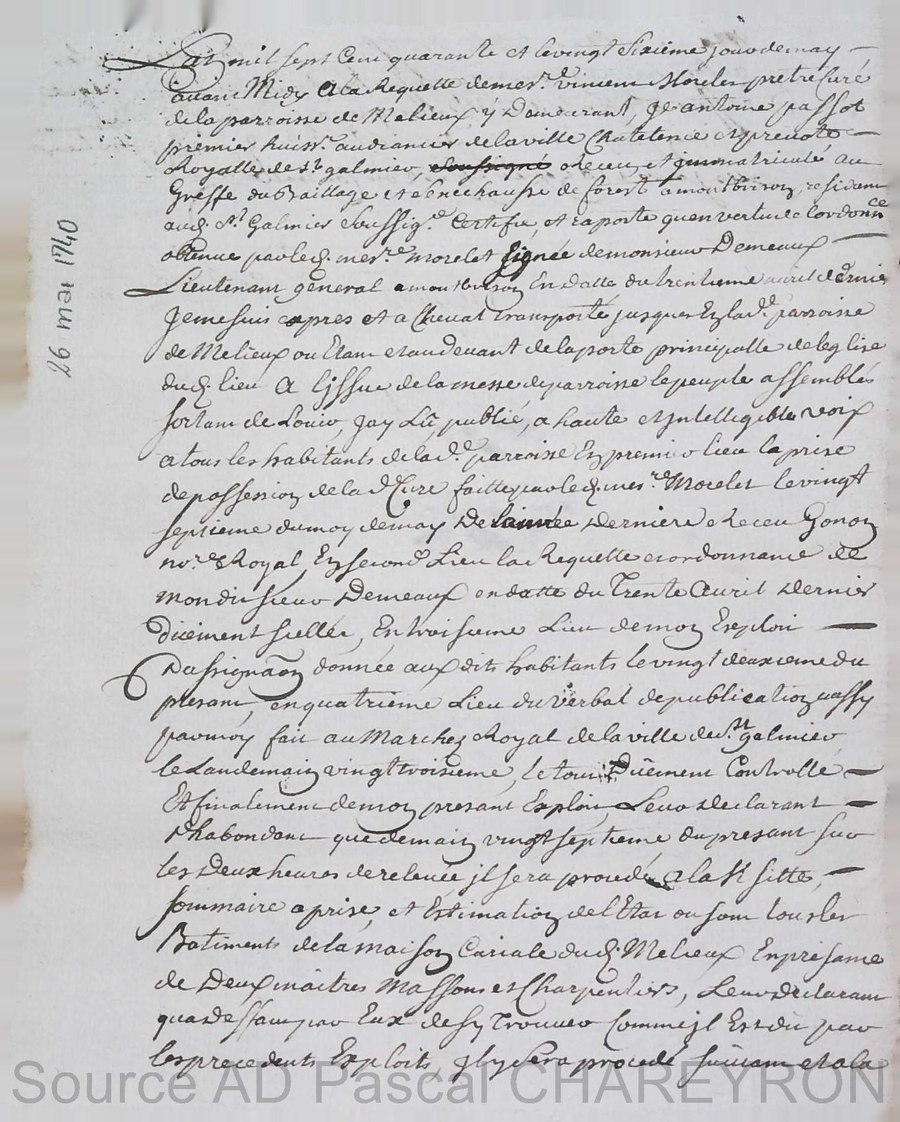 Lan mil sept Cent quarante et le vingt Sixieme jour de may
avant Midy a la Requette de mes.re vincent Morelet pretre Curé
de la parroisse de Melieux y Demeurant, Je antoine passot
premier huiss.r audiancier de la ville Chatelenie et prevoté
Royalle de S.t galmier, soussigné Receu et jmmatriculé au
Greffe du Baillage et Senechaussé de forest a montbrison, residant
aud. S.t Galmier Soussig.é Certifie, et raporte qu'en vertu de lordonn.ce
obtenue par led. mes.re Morelet Signée de monsieur Demeaux
Lieutenant general a montbrison En datte du trentieme avril dernier
Je me suis expres et a Cheval transporté jusques En lad.e parroisse
de Melieux ou Etant et au devant de la porte principalle de leglise
dud. lieu a lissue de la messe de parroisse le peuple assemblés
sortant de Louir, Jay Lû publié, a haute et jntelligible voix
a tous les habitants de lad.e parroisse En premier lieu la prise
de possession de lad. Cure faitte par led. mes.re Morelet le vingt
septieme du moy de may De lannée Derniere Receu Gonon
no.re Royal, En second Lieu la Requette et ordonnance de
mondit sieur Demeaux en datte du Trente Avril Dernier
Duëment scellée, En troisieme Lieu de mon Exploit
Dassignaon donnée aux dits habitants le vingt deuxieme du
presant, en quatrieme Lieu du verbal de publication aussy
par moy fait au Marchez Royal de la ville de S.t galmier
le Landemain vingt troisieme, le tout Duëment Controllé
Et finalement de mon presant Exploit, Leur Declarant
Dhabondant que demain vingt septieme du presant sur
les Deux heures de relevée jl sera procedé a la Visitte,
sommaire aprise, et Estimation de lEtat ou sont tous les
Batiments de la maison Curiale dud. Melieux En presance
de Deux maitres massons et Charpentiers, Leur declarant
qua Deffaut par Eux de sy trouver Comme jl Est dit par
les precedents Exploits, jl y Sera procedé suivant et a la
26 mai 1740
Source AD Pascal CHAREYRON